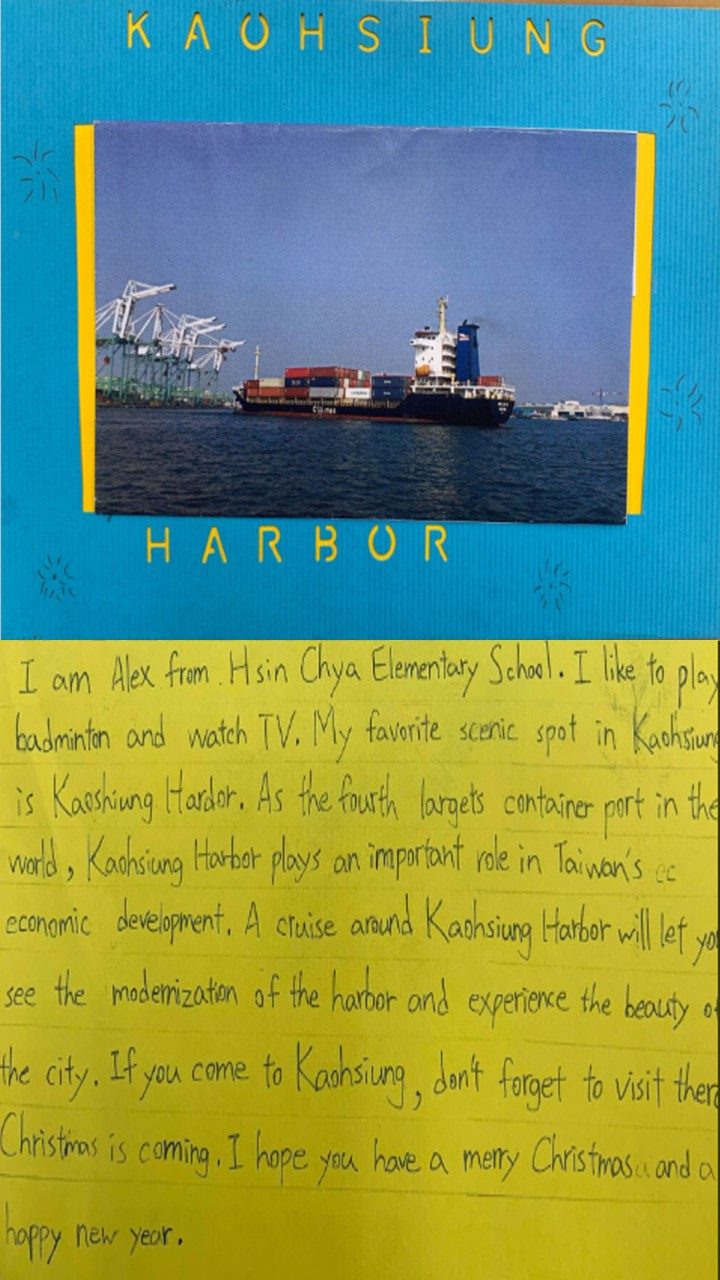 KAOHSIUNG
HARBOR
I am Alex from Hsin Chya Elementary School. I like to play
badminton and watch TV. My favorite scenic spot in Kaohsiung
is Kaoshiung Hardor. As the fourth largets container port in the
world, Kaohsiung Harbor plays an important role in Taiwan's
economic development. A cruise around Kaohsiung Harbor will let you
see the modernization of the harbor and experience the beauty of
the city. If you come to Kaohsiung, don't forget to visit there
Christmas is coming. I hope you have a merry Christmas and a
happy new year.